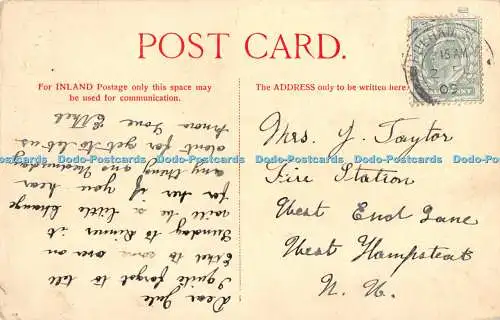 POST CARD.
For INLAND Postage only this space may
be used for communication.
The ADDRESS only to be written here.
15 AM
09
Mrs. J. Taylor
Fire Station
West End Lane
West Hampstead
N. W.
Dear Jule
I quite forgot to tell
Ethel to come over on
Sunday to dinner it
will be a little change
for her if you hear
any thing and Wednesday
dont for get to let us
know Jane
Ethel
Dodo-Postcards Dodo-Postcards Dodo-Postcards Dodo-Postcards Dodo-Postcards Dodo-Postcards